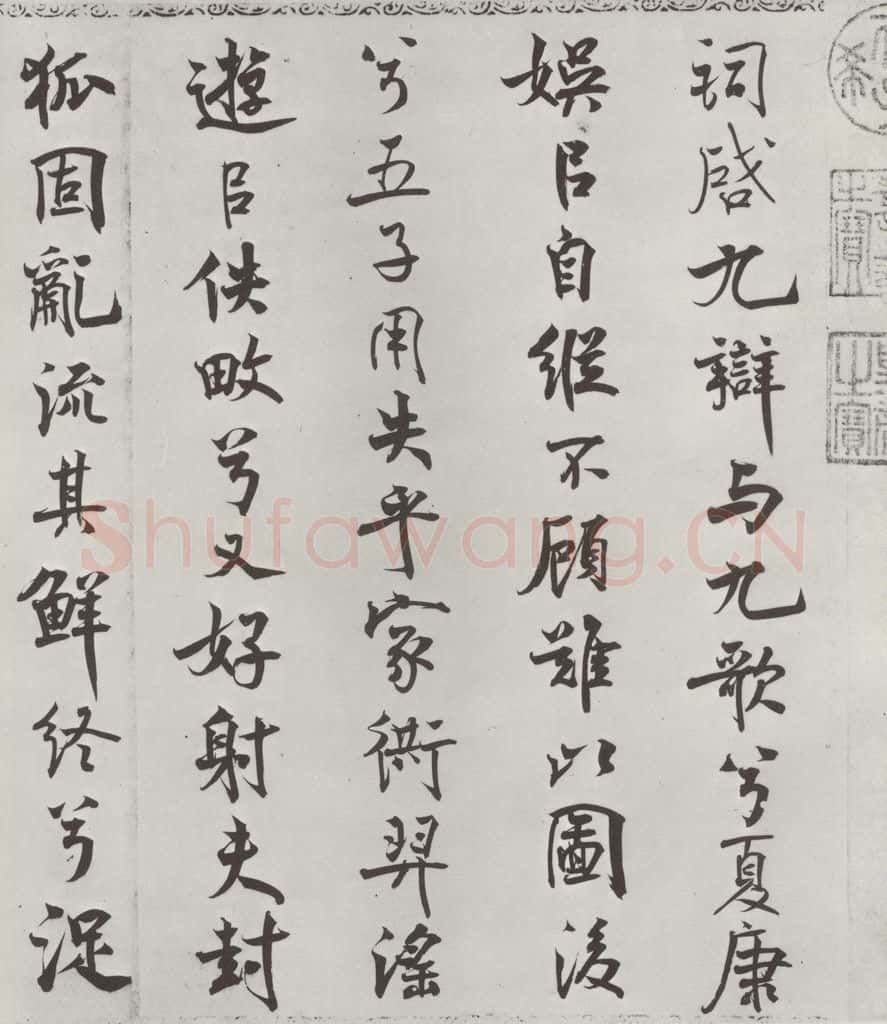 詞啓九辯与九歌兮夏康
娛㠯自縱不顧難以圖後
兮五子用失乎家衖羿滛
遊㠯佚畋兮又好射夫封
狐固亂流其鮮終兮浞
Shufawang.CN